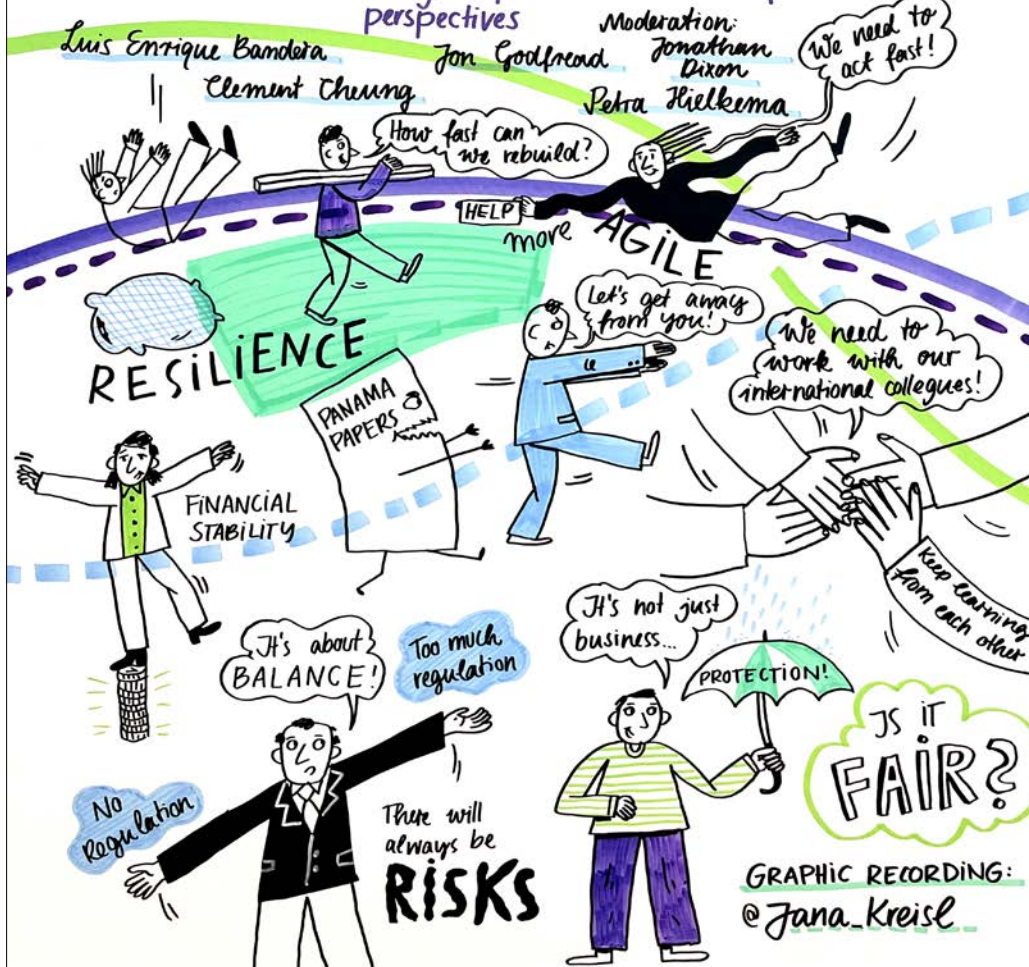 perspectives
Luis Enrique Bandera
Clement Cheung
Jon Godfread
Moderation:
Jonathan
Dixon
Petra Hielkema
We need to
act fast!
How fast can
we rebuild?
HELP
more AGILE
RESILIENCE
Let's get away
from you!
We need to
work with our
international collegues!
PANAMA
PAPERS
FINANCIAL
STABILITY
Keep learning
from each other
It's about
BALANCE!
Too much
regulation
It's not just
business...
PROTECTION!
IS IT
FAIR?
No
Regulation
There will
always be
RISKS
GRAPHIC RECORDING:
@Jana_Kreisl